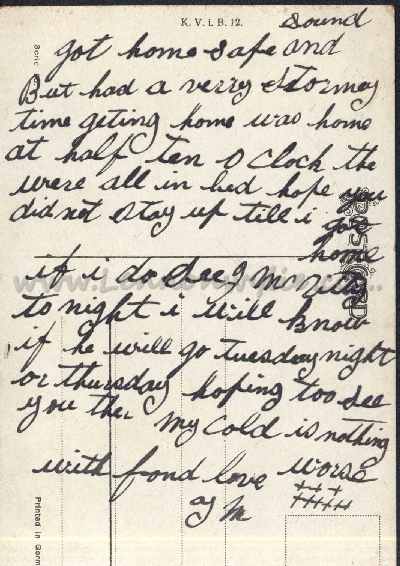 K. V. i. B. 12.
sound
got home safe and
But had a verry stormey
time geting home was home
at half ten o clock the
were all in bed hope you
did not stay up till i got
home
if i do see J M
to night i will know
if he will go tuesday night
or thursday hoping too see
you the.
my cold is nothing
worse
with fond love
J M
POST CARD
Printed in Germ